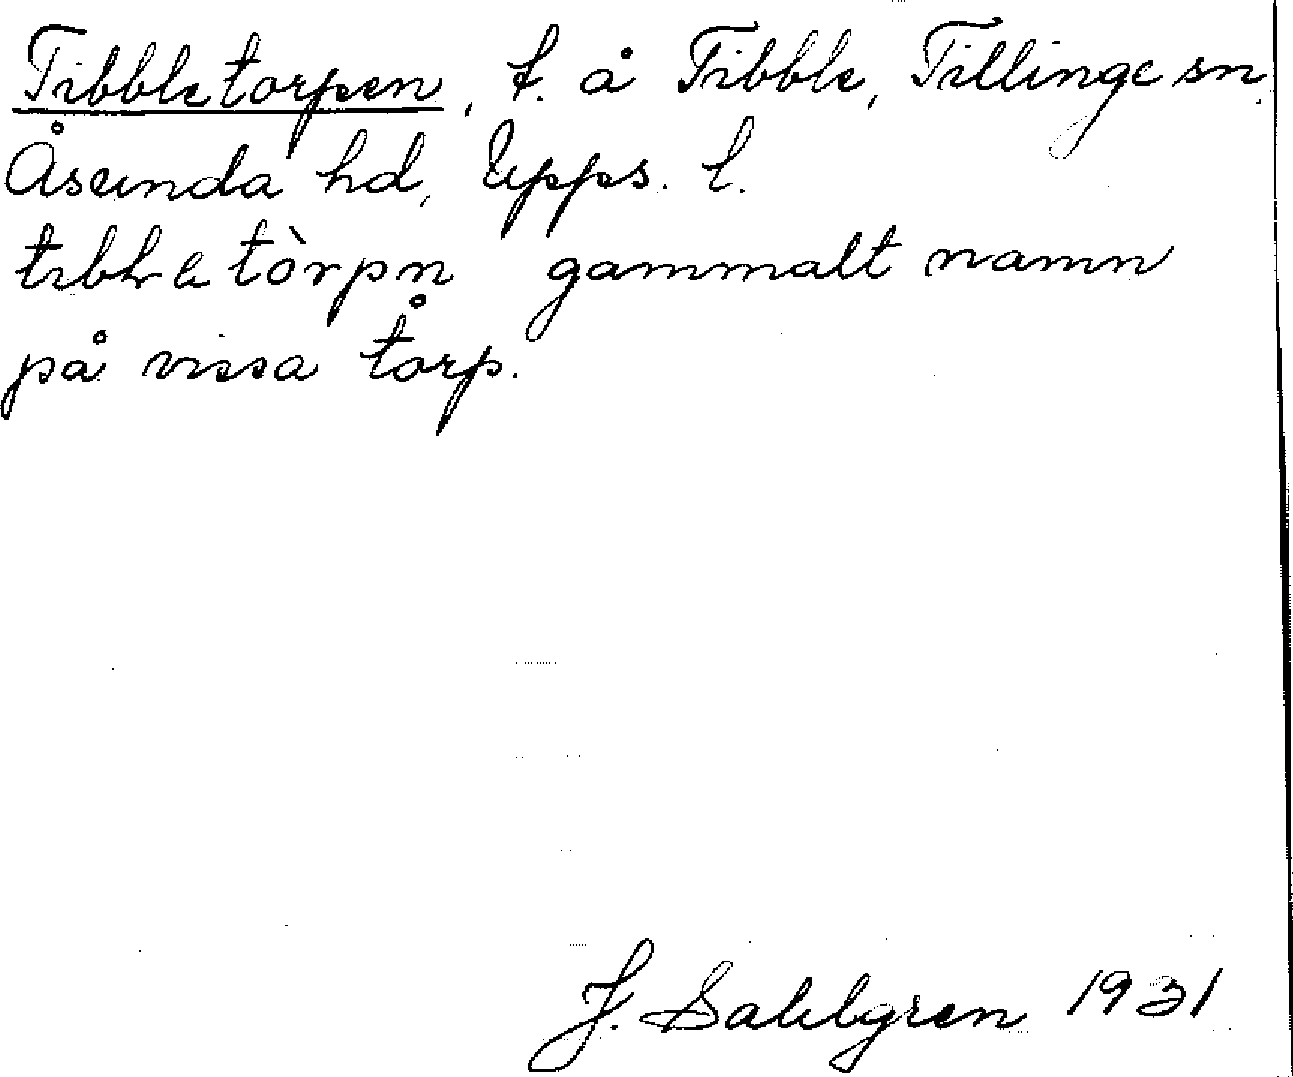 Tibbletorpen, t. å Tibble, Tillinge sn.
Åsunda hd, Upps. l.
gammalt namn
på vissa torp.
J. Sahlgren 1931